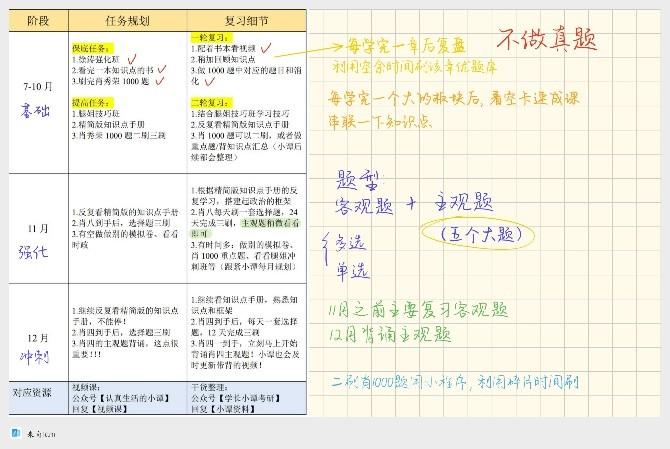 阶段 任务规划 复习细节
7-10 月
基础
保底任务：
1.徐涛强化班
2.看完一本知识点的书
3.刷完肖秀荣 1000 题
提高任务：
1.腿姐技巧班
2.精简版知识点手册
3.肖秀荣 1000 题二刷三刷
一轮复习：
1.配着书本看视频
2.稍加回顾知识点
3.做 1000 题中对应的题目和消
化
二轮复习：
1.结合腿姐技巧班学习技巧
2.反复看精简版知识点手册
3.肖 1000 题可以二刷，或者做
重点题/背知识点汇总（小谭后
续都会整理）
11 月
强化
1.反复看精简版的知识点手册
2.肖八到手后，选择题三刷
3.有空做做别的模拟卷、看看
时政
1.根据精简版知识点手册的反
复学习，搭建起政治的框架
2.肖八每天刷一套选择题，24
天完成三刷，主观题稍微看看
即可
3.有时间多：做别的模拟卷、
肖 1000 重点题、看看腿姐冲
刺班等（跟紧小谭每月规划）
12 月
冲刺
1.继续反复看精简版的知识点
手册，不能停！
2.肖四到手后，选择题三刷
3.肖四的主观题背诵，这点很
重要!!!
1.继续看知识点手册，熟悉知
识点和框架
2.肖四到手后，每天一套选择
题，12 天完成三刷
3.肖四一到手，立刻马上开始
背诵肖四主观题！小谭也会及
时更新带背的视频！
对应资源
视频课：
公众号【认真生活的小谭】
回复【视频课】
干货整理：
公众号【学长小谭考研】
回复【小谭资料】
不做真题
每学完一章后复盘
利用空余时间刷该章优题库
每学完一个大的板块后，看空卡速成课
串联一下知识点
题型
客观题 + 主观题
（五个大题）
多选
单选
11月之前主要复习客观题
12月背诵主观题
二刷肖1000题用小程序，利用碎片时间刷